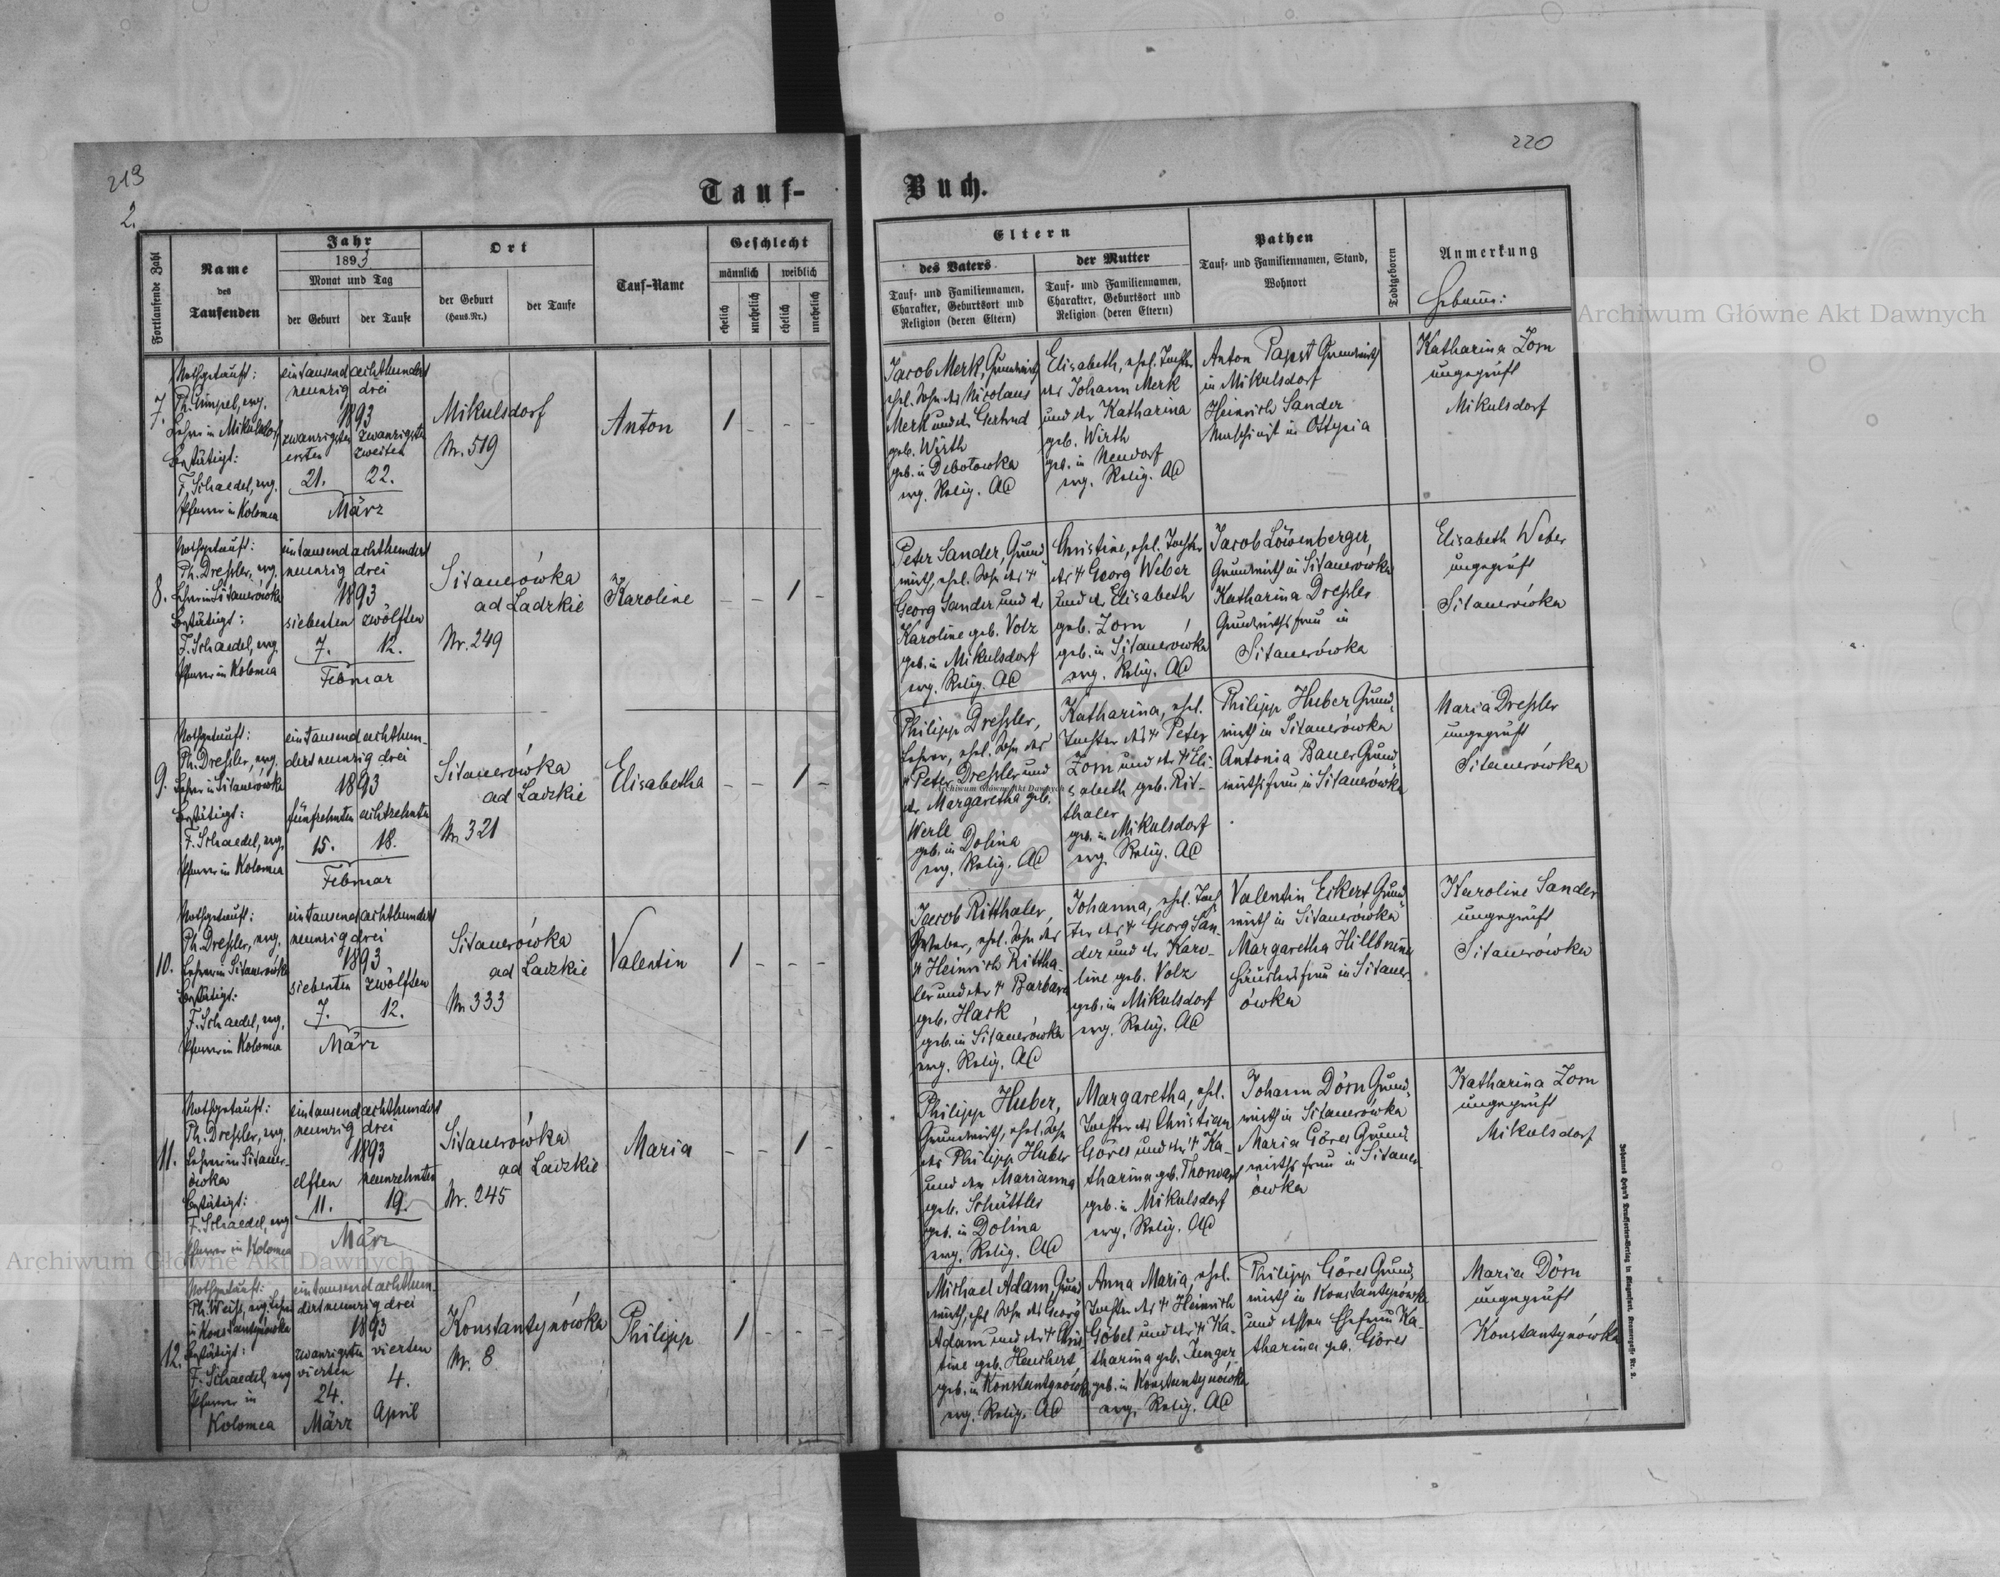 219
2.
220
Tauf-
Buch.
Fortlaufende Zahl
Name
des
Taufenden
Jahr
1893
Monat und Tag
der Geburt
der Taufe
Ort
der Geburt
(Haus-Nr.)
der Taufe
Tauf-Name
Geschlecht
männlich
weiblich
ehelich
unehelich
ehelich
unehelich
Eltern
des Vaters
Tauf- und Familiennamen,
Charakter, Geburtsort und
Religion (deren Eltern)
der Mutter
Tauf- und Familiennamen,
Charakter, Geburtsort und
Religion (deren Eltern)
Pathen
Tauf- und Familiennamen, Stand,
Wohnort
Todtgeboren
Anmerkung
Hebamme:
7.
Nothgetauft:
Ph. Gimpel, evg.
Lehrer in Mikulsdorf
Bestätigt:
F. Schaedel, evg.
Pfarrer in Kolomea
eintausend achthundert
neunzig drei
1893
zwanzigsten zwanzigsten
ersten zweiten
21. 22.
März
Mikulsdorf
Nr. 519
Anton
1 - - -
Jacob Merk, Grundwirth
ehel. Sohn des Nicolaus
Merk und der Gertrud
geb. Wirth
geb. in Debolowka
evg. Relig. AC
Elisabeth, ehel. Tochter
des Johann Merk
und der Katharina
geb. Wirth
geb. in Neudorf
evg. Relig. AC
Anton Papst Grundwirth
in Mikulsdorf
Heinrich Sander
Maschinist in Ottynia
Katharina Zorn
ungeprüft
Mikulsdorf
8.
Nothgetauft:
Ph. Dreßler, evg.
Lehrer in Sitauerówka
Bestätigt:
F. Schaedel, evg.
Pfarrer in Kolomea
eintausend achthundert
neunzig drei
1893
siebenten zwölften
7. 12.
Februar
Sitauerówka
ad Ladzkie
Nr. 249
Karoline
- - 1 -
Peter Sander, Grund-
wirth, ehel. Sohn des †
Georg Sander und der
Karoline geb. Volz
geb. in Mikulsdorf
evg. Relig. AC
Christine, ehel. Tochter
des † Georg Weber
und der Elisabeth
geb. Zorn
geb. in Sitauerówka
evg. Relig. AC
Jacob Löwenberger,
Grundwirth in Sitauerówka
Katharina Dreßler
Grundwirthsfrau in
Sitauerówka
Elisabeth Weber
ungeprüft
Sitauerówka
9.
Nothgetauft:
Ph. Dreßler, evg.
Lehrer in Sitauerówka
Bestätigt:
F. Schaedel, evg.
Pfarrer in Kolomea
eintausend achthun-
dert neunzig drei
1893
fünfzehnten achtzehnten
15. 18.
Februar
Sitauerówka
ad Ladzkie
Nr. 321
Elisabetha
- - 1 -
Philipp Dreßler,
Lehrer, ehel. Sohn des
† Peter Dreßler und
der Margaretha geb.
Werle
geb. in Dolina
evg. Relig. AC
Katharina, ehel.
Tochter des † Peter
Zorn und der † Eli-
sabeth geb. Rit-
thaler
geb. in Mikulsdorf
evg. Relig. AC
Philipp Huber Grund-
wirth in Sitauerówka
Antonia Bauer Grund-
wirthsfrau in Sitauerówka
Maria Dreßler
ungeprüft
Sitauerówka
10.
Nothgetauft:
Ph. Dreßler, evg.
Lehrer in Sitauerówka
Bestätigt:
F. Schaedel, evg.
Pfarrer in Kolomea
eintausend achthundert
neunzig drei
1893
siebenten zwölften
7. 12.
März
Sitauerówka
ad Ladzkie
Nr. 333
Valentin
1 - - -
Jacob Ritthaler,
Weber, ehel. Sohn des
† Heinrich Rittha-
ler und der † Barbara
geb. Hark
geb. in Sitauerówka
evg. Relig. AC
Johanna, ehel. Toch-
ter des † Georg San-
der und der Karo-
line geb. Volz
geb. in Mikulsdorf
evg. Relig. AC
Valentin Eckert Grund-
wirth in Sitauerówka
Margaretha Hillbrunn
Häuslersfrau in Sitauer-
ówka
Karoline Sander
ungeprüft
Sitauerówka
11.
Nothgetauft:
Ph. Dreßler, evg.
Lehrer in Sitauer-
ówka
Bestätigt:
F. Schaedel, evg
Pfarrer in Kolomea
eintausend achthundert
neunzig drei
1893
elften neunzehnten
11. 19.
März
Sitauerówka
ad Ladzkie
Nr. 245
Maria
- - 1 -
Philipp Huber,
Grundwirth, ehel. Sohn
des Philipp Huber
und der Marianna
geb. Schüttler
geb. in Dolina
evg. Relig. AC
Margaretha, ehel.
Tochter des Christian
Göres und der † Ka-
tharina geb. Thomas
geb. in Mikulsdorf
evg. Relig. AC
Johann Dörn Grund-
wirth in Sitauerówka
Maria Göres Grund-
wirthsfrau in Sitauer-
ówka
Katharina Zorn
ungeprüft
Mikulsdorf
12.
Nothgetauft:
Ph. Weiß, evg. Lehrer
in Konstantynówka
Bestätigt:
F. Schaedel, evg
Pfarrer in
Kolomea
eintausend achthun-
dert neunzig drei
1893
zwanzigsten vierten
vierten
24. 4.
März April
Konstantynówka
Nr. 8
Philipp
1 - - -
Michael Adam, Grund-
wirth, ehel. Sohn des Georg
Adam und der † Chris-
tine geb. Heuchert
geb. in Konstantynówka
evg. Relig. AC
Anna Maria, ehel.
Tochter des † Heinrich
Göbel und der † Ka-
tharina geb. Zenger
geb. in Konstantynówka
evg. Relig. AC
Philipp Göres Grund-
wirth in Konstantynówka
und dessen Ehefrau Ka-
tharina geb. Göres
Maria Dörn
ungeprüft
Konstantynówka
Archiwum Główne Akt Dawnych
Archiwum Główne Akt Dawnych
Archiwum Główne Akt Dawnych